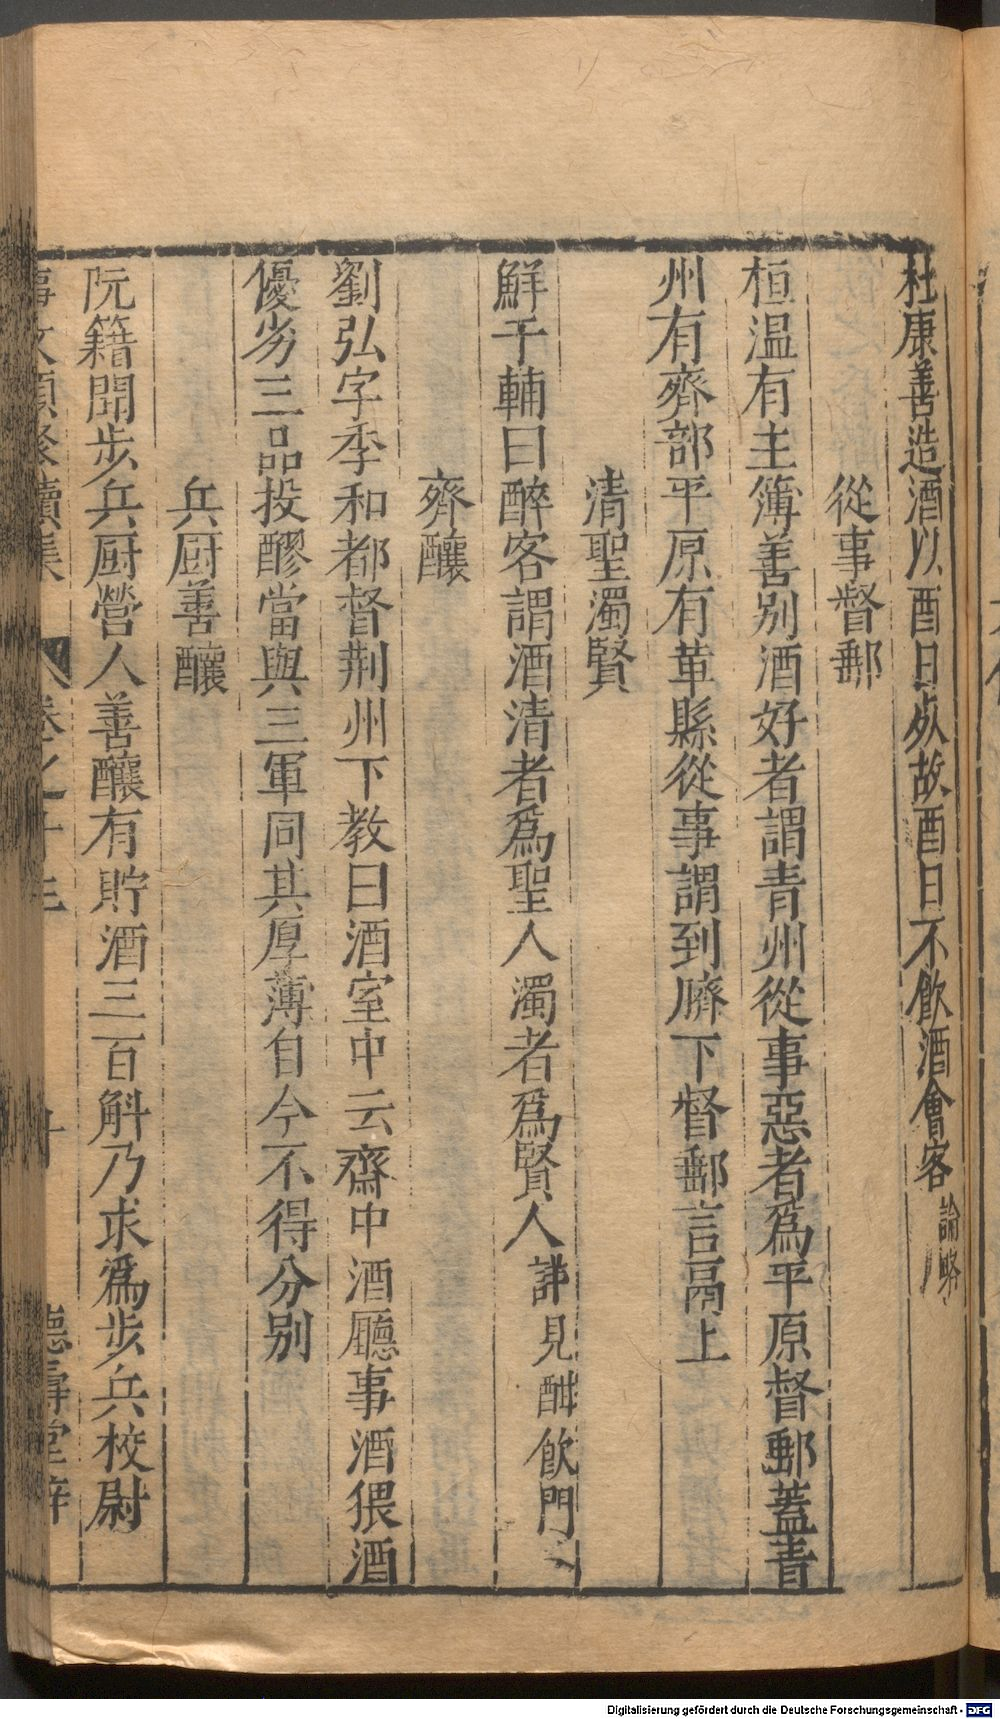 杜康善造酒以酉日死故酉日不飲酒會客論略
從事督郵
桓温有主簿善别酒好者謂青州從事惡者為平原督郵蓋青
州有齊部平原有革縣從事謂到臍下督郵言鬲上
清聖濁賢
鮮于輔曰醉客謂酒清者為聖人濁者為賢人詳見酣飲門
齊釀
劉弘字季和都督荆州下教曰酒室中云齋中酒廳事酒猥酒
優劣三品投醪當與三軍同其厚薄自今不得分别
兵厨善釀
阮籍聞步兵厨營人善釀有貯酒三百斛乃求為步兵校尉
事文類聚續集 卷之十三 德壽堂梓
Digitalisierung gefördert durch die Deutsche Forschungsgemeinschaft - DFG